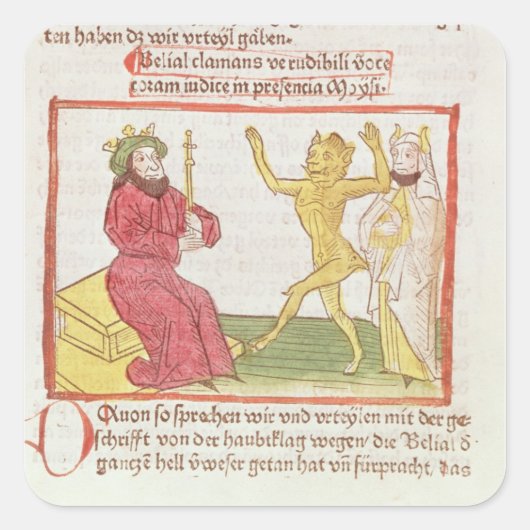 ten haben dz wir vrteyl gåben.
Belial clamans ve rudibili voce
coram iudice in presencia Moysi.
Quon so sprechen wir vnd vrteylen mit der ge⸗
schrifft von der haubtklag wegen / die Belial d̄
gancze hell v̄weser getan hat vn̄ fürpracht, das